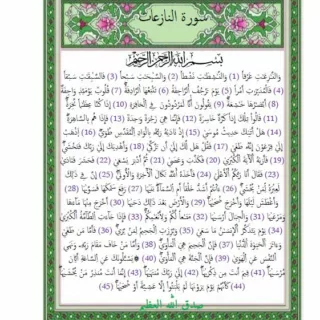 سورة النازعات
بِسْمِ اللَّهِ الرَّحْمَٰنِ الرَّحِيمِ
وَالنَّازِعَاتِ غَرْقًا (1) وَالنَّاشِطَاتِ نَشْطًا (2) وَالسَّابِحَاتِ سَبْحًا (3) فَالسَّابِقَاتِ سَبْقًا
(4) فَالْمُدَبِّرَاتِ أَمْرًا (5) يَوْمَ تَرْجُفُ الرَّاجِفَةُ (6) تَتْبَعُهَا الرَّادِفَةُ (7) قُلُوبٌ يَوْمَئِذٍ وَاجِفَةٌ
(8) أَبْصَارُهَا خَاشِعَةٌ (9) يَقُولُونَ أَإِنَّا لَمَرْدُودُونَ فِي الْحَافِرَةِ (10) أَإِذَا كُنَّا عِظَامًا نَخِرَةً
(11) قَالُوا تِلْكَ إِذًا كَرَّةٌ خَاسِرَةٌ (12) فَإِنَّمَا هِيَ زَجْرَةٌ وَاحِدَةٌ (13) فَإِذَا هُمْ بِالسَّاهِرَةِ
(14) هَلْ أَتَاكَ حَدِيثُ مُوسَىٰ (15) إِذْ نَادَاهُ رَبُّهُ بِالْوَادِ الْمُقَدَّسِ طُوًى (16) اذْهَبْ
إِلَىٰ فِرْعَوْنَ إِنَّهُ طَغَىٰ (17) فَقُلْ هَلْ لَكَ إِلَىٰ أَنْ تَزَكَّىٰ (18) وَأَهْدِيَكَ إِلَىٰ رَبِّكَ فَتَخْشَىٰ
(19) فَأَرَاهُ الْآيَةَ الْكُبْرَىٰ (20) فَكَذَّبَ وَعَصَىٰ (21) ثُمَّ أَدْبَرَ يَسْعَىٰ (22) فَحَشَرَ فَنَادَىٰ
(23) فَقَالَ أَنَا رَبُّكُمُ الْأَعْلَىٰ (24) فَأَخَذَهُ اللَّهُ نَكَالَ الْآخِرَةِ وَالْأُولَىٰ (25) إِنَّ فِي ذَٰلِكَ
لَعِبْرَةً لِمَنْ يَخْشَىٰ (26) أَأَنْتُمْ أَشَدُّ خَلْقًا أَمِ السَّمَاءُ بَنَاهَا (27) رَفَعَ سَمْكَهَا فَسَوَّاهَا (28)
وَأَغْطَشَ لَيْلَهَا وَأَخْرَجَ ضُحَاهَا (29) وَالْأَرْضَ بَعْدَ ذَٰلِكَ دَحَاهَا (30) أَخْرَجَ مِنْهَا مَاءَهَا
وَمَرْعَاهَا (31) وَالْجِبَالَ أَرْسَاهَا (32) مَتَاعًا لَكُمْ وَلِأَنْعَامِكُمْ (33) فَإِذَا جَاءَتِ الطَّامَّةُ الْكُبْرَىٰ
(34) يَوْمَ يَتَذَكَّرُ الْإِنْسَانُ مَا سَعَىٰ (35) وَبُرِّزَتِ الْجَحِيمُ لِمَنْ يَرَىٰ (36) فَأَمَّا مَنْ طَغَىٰ
(37) وَآثَرَ الْحَيَاةَ الدُّنْيَا (38) فَإِنَّ الْجَحِيمَ هِيَ الْمَأْوَىٰ (39) وَأَمَّا مَنْ خَافَ مَقَامَ رَبِّهِ وَنَهَى
النَّفْسَ عَنِ الْهَوَىٰ (40) فَإِنَّ الْجَنَّةَ هِيَ الْمَأْوَىٰ (41) يَسْأَلُونَكَ عَنِ السَّاعَةِ أَيَّانَ
مُرْسَاهَا (42) فِيمَ أَنْتَ مِنْ ذِكْرَاهَا (43) إِلَىٰ رَبِّكَ مُنْتَهَاهَا (44) إِنَّمَا أَنْتَ مُنْذِرُ مَنْ يَخْشَاهَا
(45) كَأَنَّهُمْ يَوْمَ يَرَوْنَهَا لَمْ يَلْبَثُوا إِلَّا عَشِيَّةً أَوْ ضُحَاهَا (46)
صدق الله العظيم